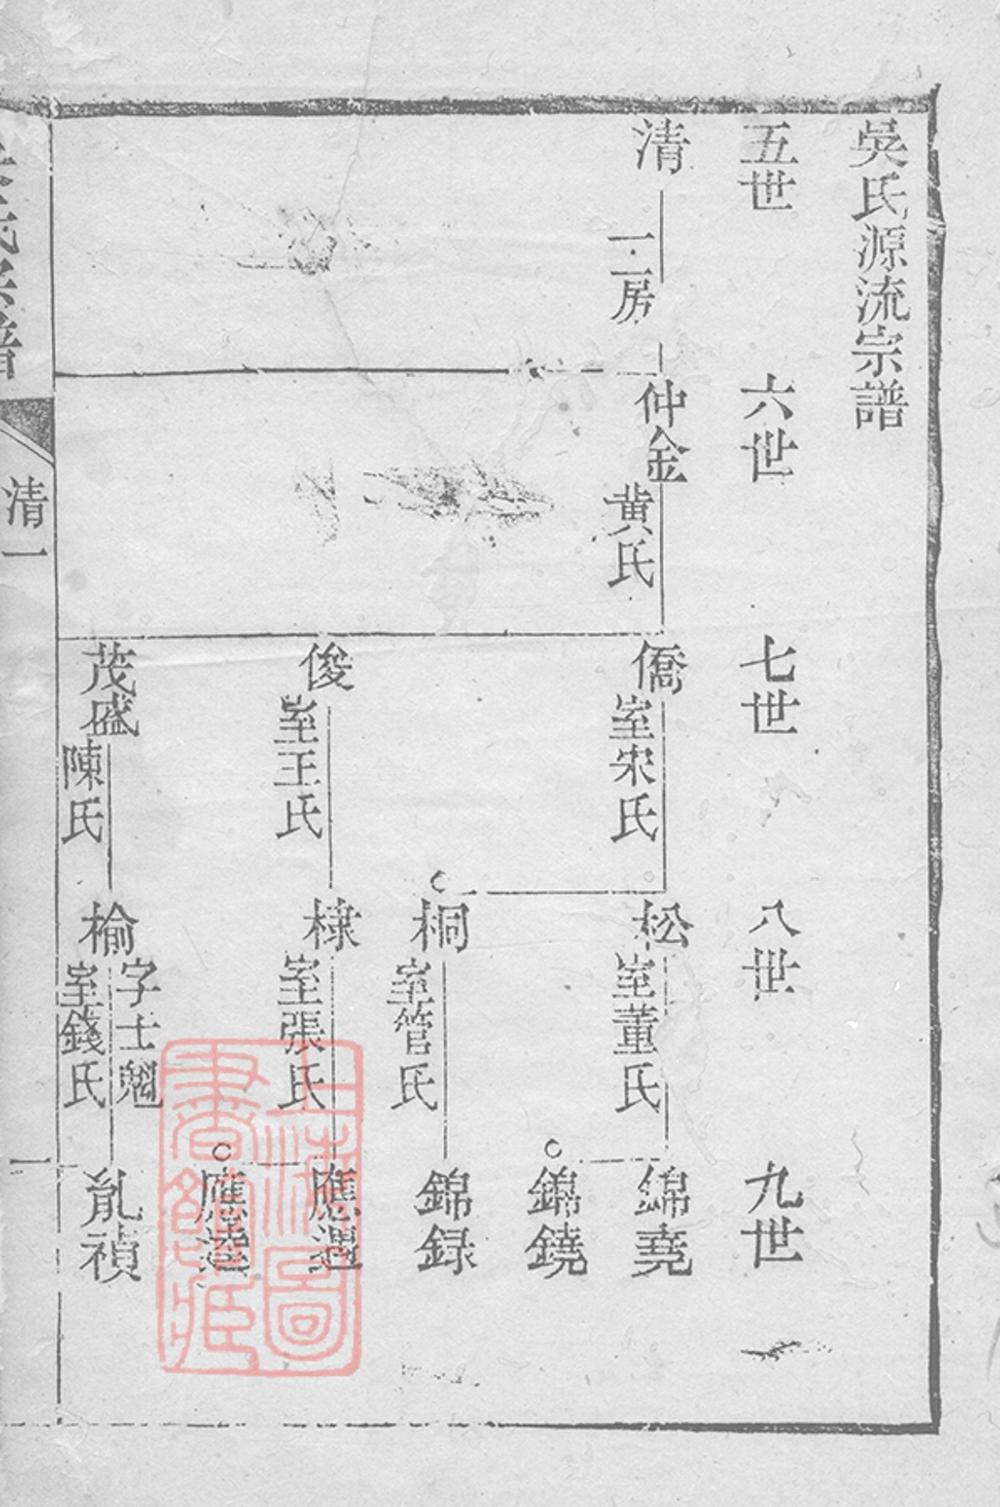 吳氏源流宗譜
五世
六世
七世
八世
九世
清
一二房
仲金
黄氏
僑
室宋氏
松
室董氏
錦堯
錦鐃
桐
室管氏
錦録
俊
室王氏
棣
室張氏
應遇
應逵
茂盛
陳氏
榆
字士魁
室錢氏
胤禎
氏宗譜
清一
一
上海圖書館藏